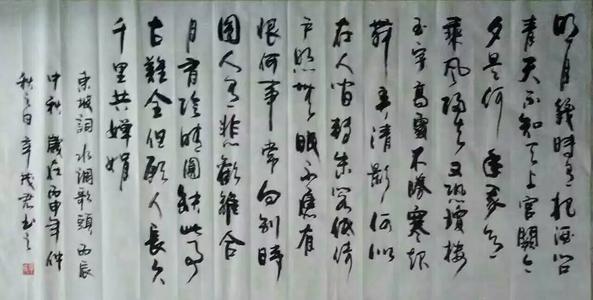 明月幾時有把酒问
青天不知天上宫闕今
夕是何年我欲
乘风歸去又恐瓊楼
玉宇高處不勝寒起
舞弄清影何似
在人间转朱阁低绮
户照無眠不應有
恨何事常向别時
圆人有悲歡離合
月有陰晴圓缺此事
古難全但願人長久
千里共嬋娟
東坡詞水调歌頭丙辰
中秋歲在丙申年仲
秋之日辛茂君书之